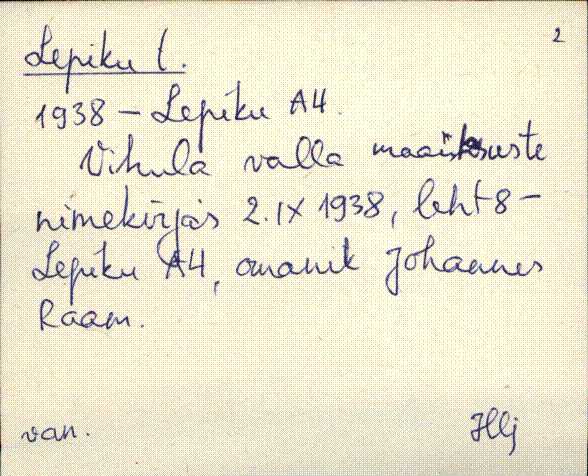 2
Lepiku t.
1938 - Lepiku A4.
Vihula valla maaüksuste
nimekirjas 2.IX 1938, leht 8 -
Lepiku A4, omanik Johannes
Raam.
van.